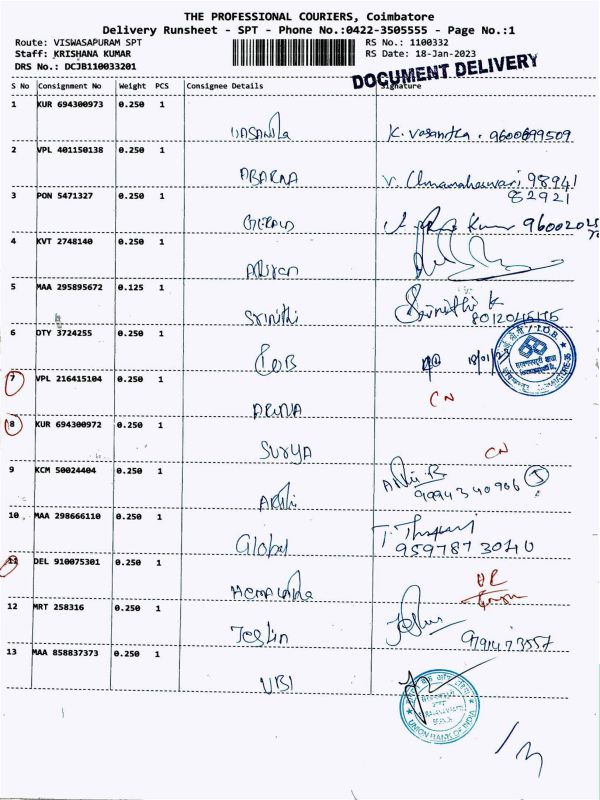 THE PROFESSIONAL COURIERS, Coimbatore
Delivery Runsheet - SPT - Phone No.:0422-3505555 - Page No.:1
Route: VISWASAPURAM SPT RS No.: 1100332
Staff: KRISHANA KUMAR RS Date: 18-Jan-2023
DRS No.: DCJB110033201
DOCUMENT DELIVERY
S No Consignment No Weight PCS Consignee Details Signature
1 KUR 694300973 0.250 1
VASANtha K. Vasantha. 9600699509
2 VPL 401150138 0.250 1
ABARNA V. Umamaheswari 98941
82921
3 PON 5471327 0.250 1
GERALD Kumar 9600202
4 KVT 2748140 0.250 1
5 MAA 295895672 0.125 1
Srinithi Srinithi K
8012045175
6 DTY 3724255 0.250 1
IOB 18/01/23
I.O.B.
7 VPL 216415104 0.250 1
CN
ARUNA
8 KUR 694300972 0.250 1
SURYA CN
9 KCM 50024404 0.250 1
9994340906 5
10 MAA 298666110 0.250 1
Global
9597873040
11 DEL 910075301 0.250 1
HEMALatha
12 MRT 258316 0.250 1
Jeslin 9791473557
13 MAA 858837373 0.250 1
UBI
UNION BANK OF INDIA